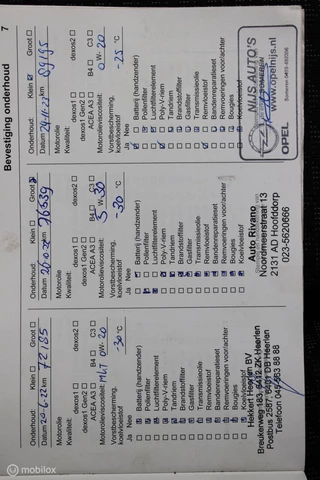 Bevestiging onderhoud 7
Onderhoud: Klein Groot
Datum 20-6-22 km 72185
Motorolie
Kwaliteit: dexos1 dexos2
dexos1 Gen2
ACEA A3 B4 C3
Motorolieviscositeit: 0W-20
Vorstbescherming, koelvloeistof -30 °C
Ja Nee
Batterij (handzender)
Pollenfilter
Luchtfilterelement
Poly-V-riem
Tandriem
Brandstoffilter
Gasfilter
Transmissieolie
Remvloeistof
Bandenreparatieset
Remvoeringen voor/achter
Bougies
Koelvloeistof
Hekkert Heerlen BV
Breukerweg 183, 6412 ZK Heerlen
Postbus 2587, 6401 DB Heerlen
Onderhoud: Klein Groot
Datum km
Motorolie
Kwaliteit: dexos1 dexos2
dexos1 Gen2
ACEA A3 B4 C3
Motorolieviscositeit: 5W-30
Vorstbescherming, koelvloeistof -30 °C
Ja Nee
Batterij (handzender)
Pollenfilter
Luchtfilterelement
Poly-V-riem
Tandriem
Brandstoffilter
Gasfilter
Transmissieolie
Remvloeistof
Bandenreparatieset
Remvoeringen voor/achter
Bougies
Koelvloeistof
Auto Rivano
Noordmeerstraat 13
2131 AD Hoofddorp
023-5620666
Onderhoud: Klein Groot
Datum km
Motorolie
Kwaliteit: dexos1 dexos2
dexos1 Gen2
ACEA A3 B4 C3
Motorolieviscositeit: 0W-20
Vorstbescherming, koelvloeistof -25 °C
Ja Nee
Batterij (handzender)
Pollenfilter
Luchtfilterelement
Poly-V-riem
Tandriem
Brandstoffilter
Gasfilter
Transmissieolie
Remvloeistof
Bandenreparatieset
Remvoeringen voor/achter
Bougies
Koelvloeistof
NIJS AUTO'S
www.opelnijs.nl
OPEL
mobilox